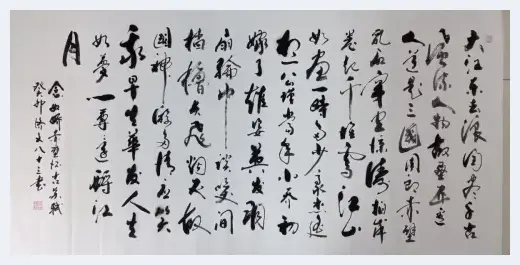 大江东去浪淘尽千古
风流人物故垒西边
人道是三國周郎赤壁
乱石穿空惊涛拍岸
卷起千堆雪江山
如画一时多少豪杰遥
想公瑾当年小乔初
嫁了雄姿英发羽
扇纶巾谈笑间
樯橹灰飞烟灭故
國神游多情应笑
我早生华发人生
如梦一尊还酹江
月
念奴娇赤壁怀古苏轼
癸卯八十三书